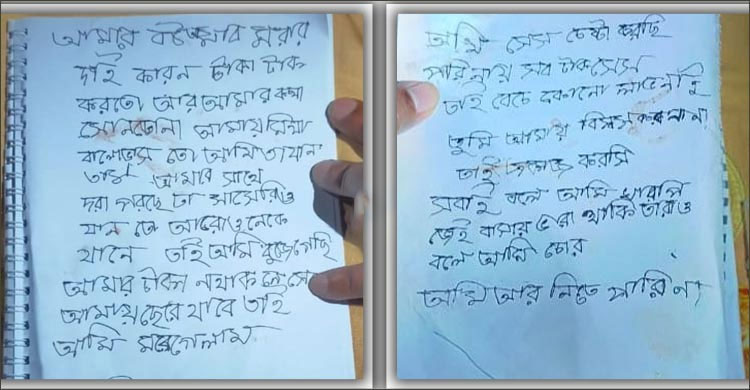 আমার বউআমার মরার
দাই কারন টাকা টাক
করতো আর আমার কথা
সোনতোনা আমায় মিথ্যা
বালোভাসে তো আমি তা যান
আমার সাথে
দরা পরছে টা সাসেরিও
যান তে আরোওনেকে
যানে তাই আমি বুজেগেছি
আমার টাকা নাথাক লে সে
আমায় ছেরে যাবে তাই
আমি মরেগেলাম
আমি সেস চেষ্টা করছি
পারিনায় সব টাকা সেস
তাই বেচে দকানো লাভ নাই
তুমি আমায় বিশ্বস করলা না
তাই করসি
সবাই বলে আমি খারাপ
জেই বাসায় ভারা থাকি তারাও
বলে আমি চোর
আমি আর নিতে পারিনা